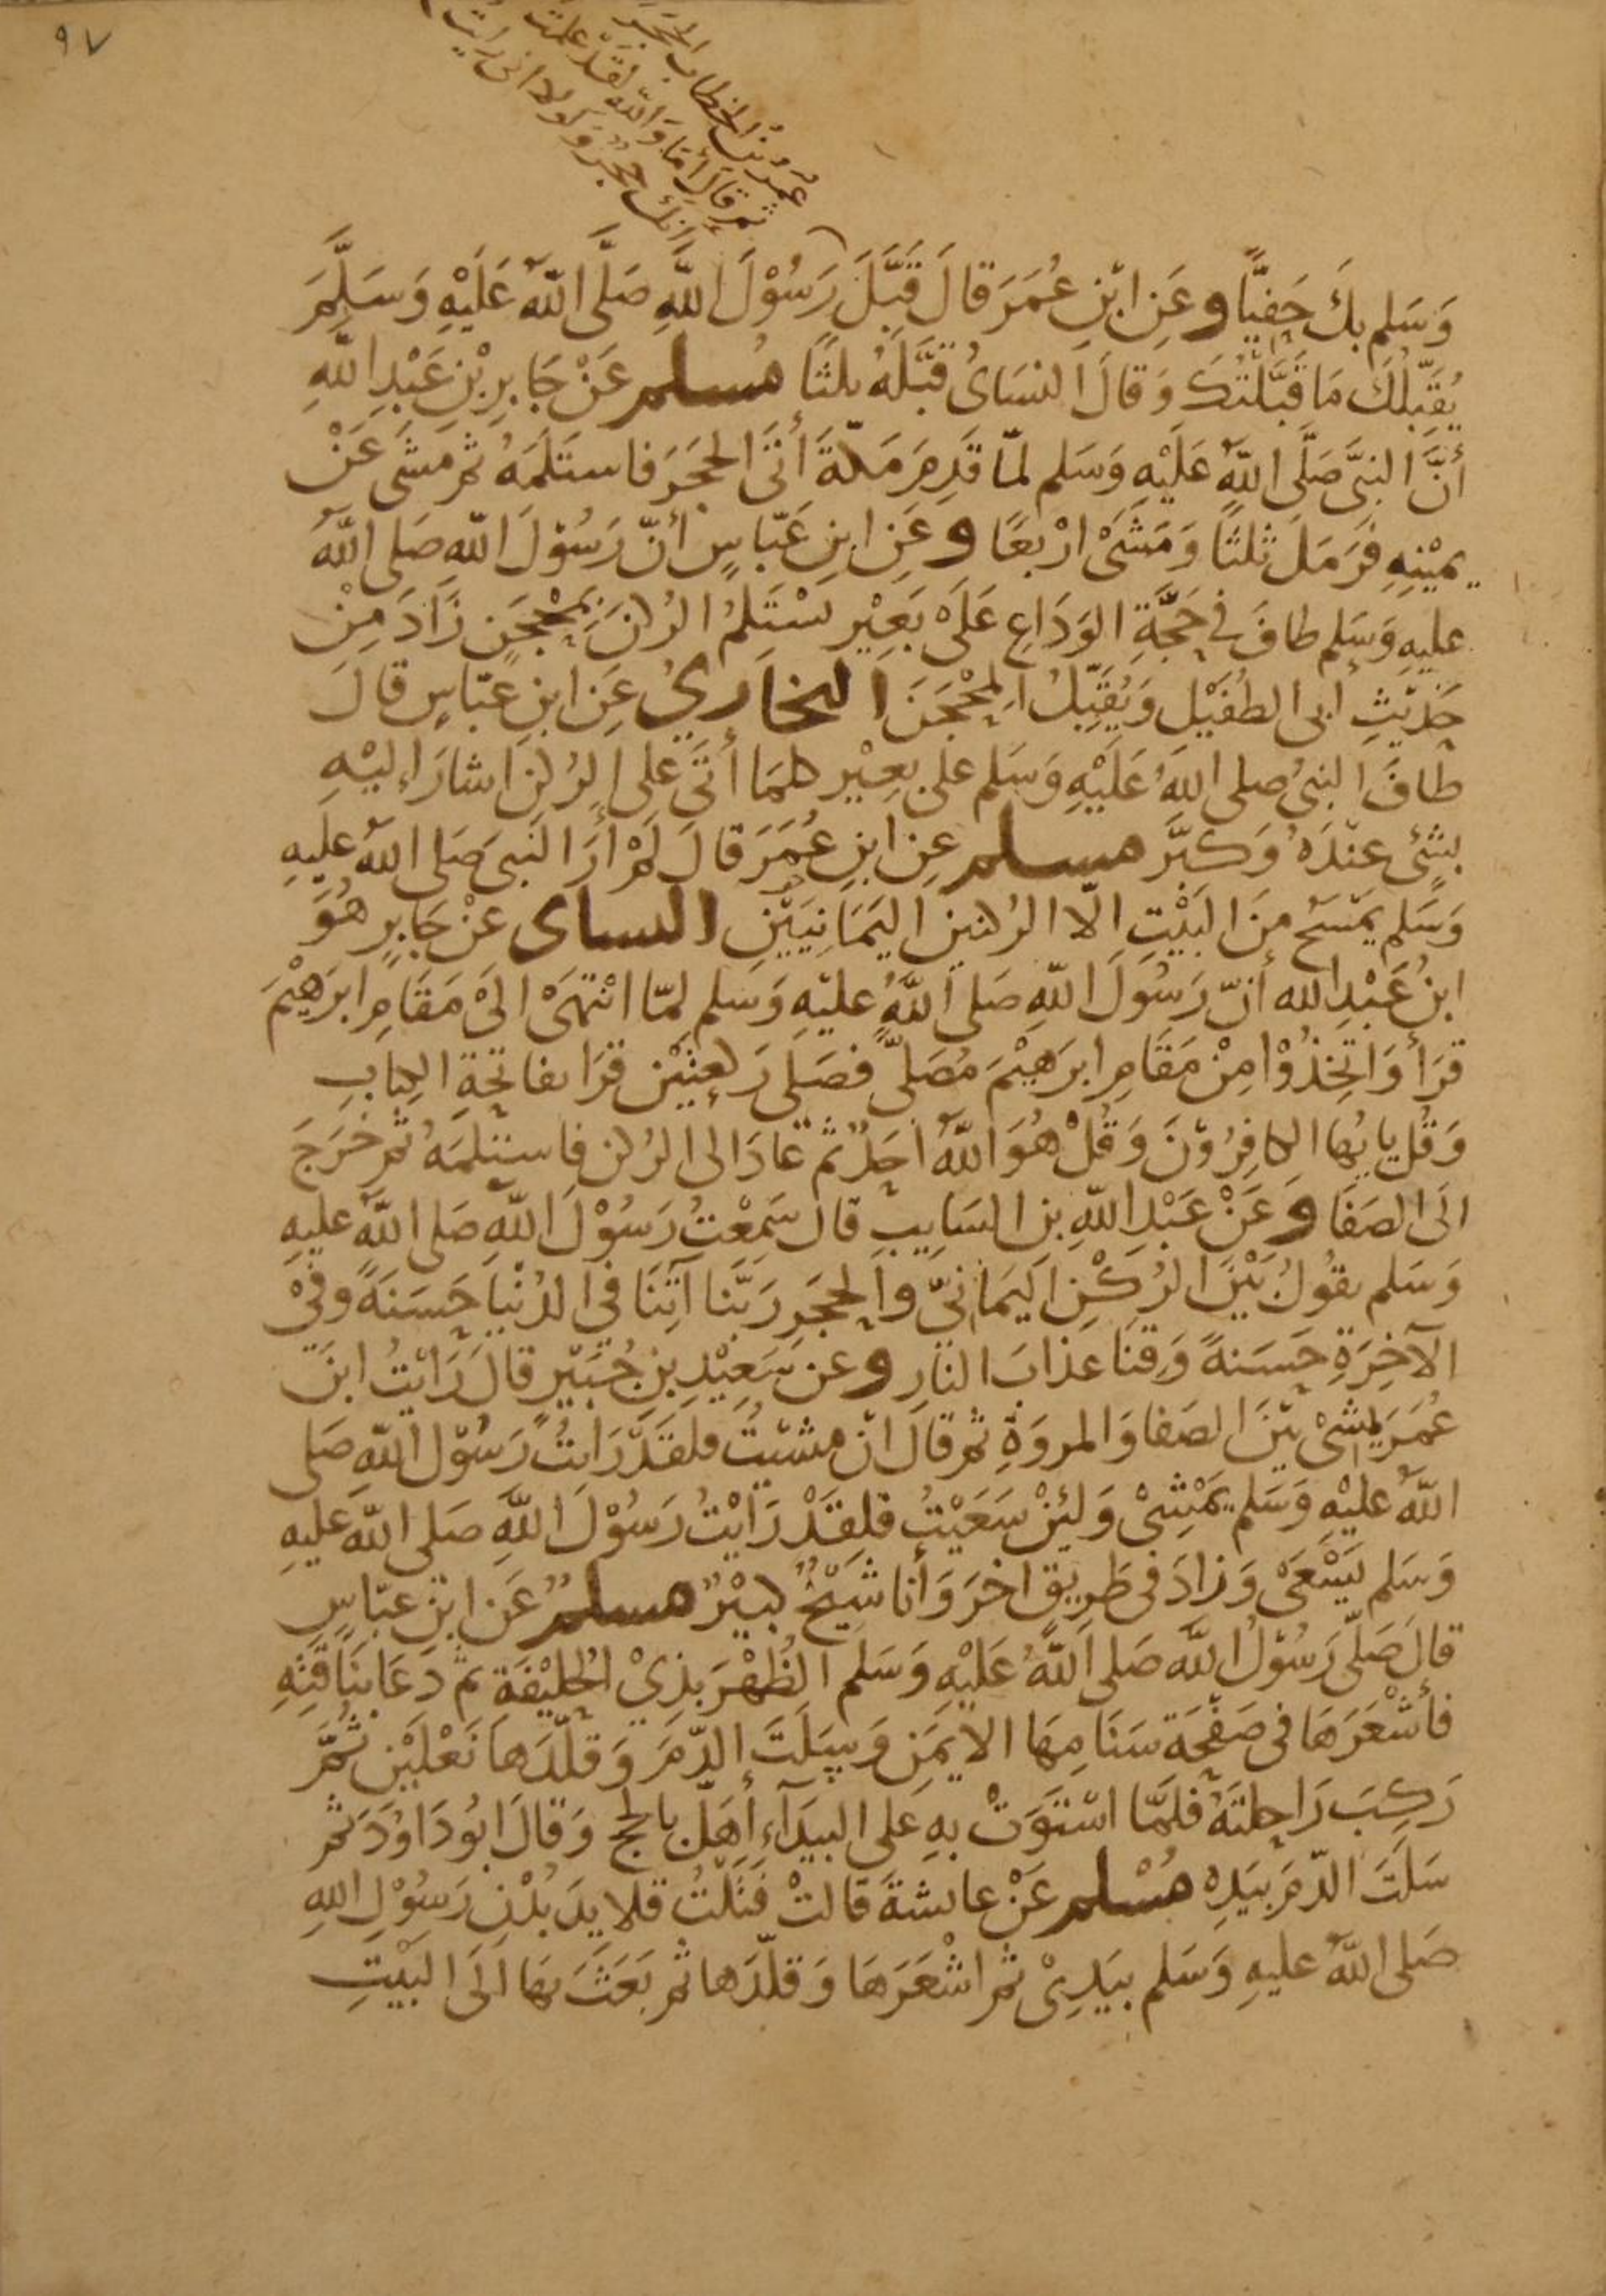 ٩٧
عُمَرُ بْنُ الخطاب الحَجَرَ
ثم قَالَ أَمَا وَاللّٰهِ لقَدْ علمت
إنك حَجَرٌ وَلولا انى رايت
وَسَلم بِكَ حَفِيًّا وعَنِ ابْنِ عُمَرَ قالَ قَبَّلَ رَسُوْلَ اللّٰهِ صَلَّى اللّٰهُ عَلَيْهِ وَسَلَّمَ
يُقَبِّلُكَ مَا قَبَّلْتُكَ وَقالَ النسَاىُ قَبَّلَهُ ثلثًا مُسلم عَنْ جَابِرِ بْنِ عَبْدِ اللّٰهِ
أنَّ النبىَّ صَلَّى اللّٰهُ عَلَيْهِ وَسَلم لمّا قَدِمَ مَكّةَ أتَى الحَجَرَ فاستَلَمَهُ ثم مَشَى عَنْ
يمْيْنِهِ فَرَمَلَ ثلثًا وَمَشَىْ ارْبعًا وعَنِ ابنِ عَبّاسٍ أنّ رَسُوْلَ اللّٰهِ صَلى اللّٰهُ
عليهِ وَسَلم طافَ فِى حَجَّةِ الوَدَاعِ عَلَىْ بَعِيْرٍ يَسْتَلِمُ الرُكنَ بمِحْجَنٍ زَادَ مِنْ
حَدِيْثِ أبى الطُفَيْل وَيُقَبِّلُ المِحْجَنَ البخاريُ عَنِ ابنِ عبّاسٍ قالَ
طافَ النبىُ صلى اللّٰهُ عَلَيْهِ وَسَلم على بعِيْرٍ كلمَا أتَى على الرُكنِ اشارَ إليْهِ
بشَئٍ عنْدَهُ وَكَبَّر مسلم عن ابنِ عُمَرَ قالَ لَمْ أرَ النَبىَ صَلى اللّٰهُ عليهِ
وَسَلم يمْسَحُ منَ البَيْتِ الّا الرُكنين اليَمَانِيَيْنِ النساى عَنْ جَابِرٍ هُوَ
ابنُ عَبْدِ اللّٰه أنّ رَسُولَ اللّٰهِ صَلى اللّٰهُ عليْهِ وَسَلم لمّا انْتَهَىْ الىْ مَقَامِ ابرَهِيْمَ
قرَأ وَاتَّخِذُوْا مِنْ مَقَامِ ابرَهِيْمَ مُصَلًّى فصَلى رَكعتَيْن قرَا بفاتحَةِ الكِتابِ
وَقُل يايُها الكافِرُوْنَ وَقُلْ هُوَ اللّٰهُ أحَدٌ ثم عَادَ الى الرُكن فاستلمَهُ ثم خَرَجَ
الَى الصَفَا وَعَنْ عَبْدِ اللّٰهِ بن السَايِبِ قال سَمِعْتُ رَسُوْلَ اللّٰهِ صَلى اللّٰهُ عليهِ
وَسَلم يقُولُ بَيْنَ الرُكْنِ اليَمَانىّ والحَجَرِ رَبَّنا آتِنَا فِى الدُنْيَا حَسَنَةً وَفىْ
الآخِرَةِ حَسَنةً وَقِنا عذابَ النارِ وعن سَعِيْدِ بنِ جُبَيْرٍ قالَ رَايْتُ ابنَ
عُمَرَ يمْشىْ بَيْنَ الصَفا وَالمروَةِ ثم قالَ انْ مشَيْتُ فلقَدْ رَايتُ رَسُوْلَ اللّٰهِ صَلى
اللّٰهُ عليْهِ وَسَلم يمْشِىْ وَلئِنْ سَعَيْتُ فلقَدْ رَايْتُ رَسُوْلَ اللّٰهِ صَلى اللّٰه عليهِ
وَسَلم يَسْعَىْ وَزادَ فى طَرِيقٍ اخرَ وَأنا شَيْخٌ كبيْرٌ مسلمٌ عَنِ ابْنِ عبّاسٍ
قالَ صَلّى رَسُوْلُ اللّٰه صَلى اللّٰهُ عَلَيْهِ وَسَلم الظُهْرَ بذِيْ الحُلَيْفَةِ ثم دَعَا بنَاقتِهِ
فأشْعَرَهَا فى صَفْحَة سَنَامِهَا الايمَنِ وَسَلَتَ الدّمَ وَقلّدَها نَعْلَيْن ثُمَّ
رَكِبَ رَاحِلتَهُ فلمَّا اسْتَوَتْ بهِ على البيَدآءِ أهَلّ بالحج وَقالَ ابُو دَاوُدَ ثم
سَلَتَ الدّمَ بيَدِهِ مُسْلم عَنْ عائشةَ قالتْ فَتَلْتُ قلايِدَ بُدْنِ رَسُوْلِ اللّٰهِ
صَلى اللّٰهُ عليهِ وَسَلم بيَدِىْ ثم اشْعَرَهَا وَقلّدَها ثم بَعَثَ بهَا الَى البَيْتِ